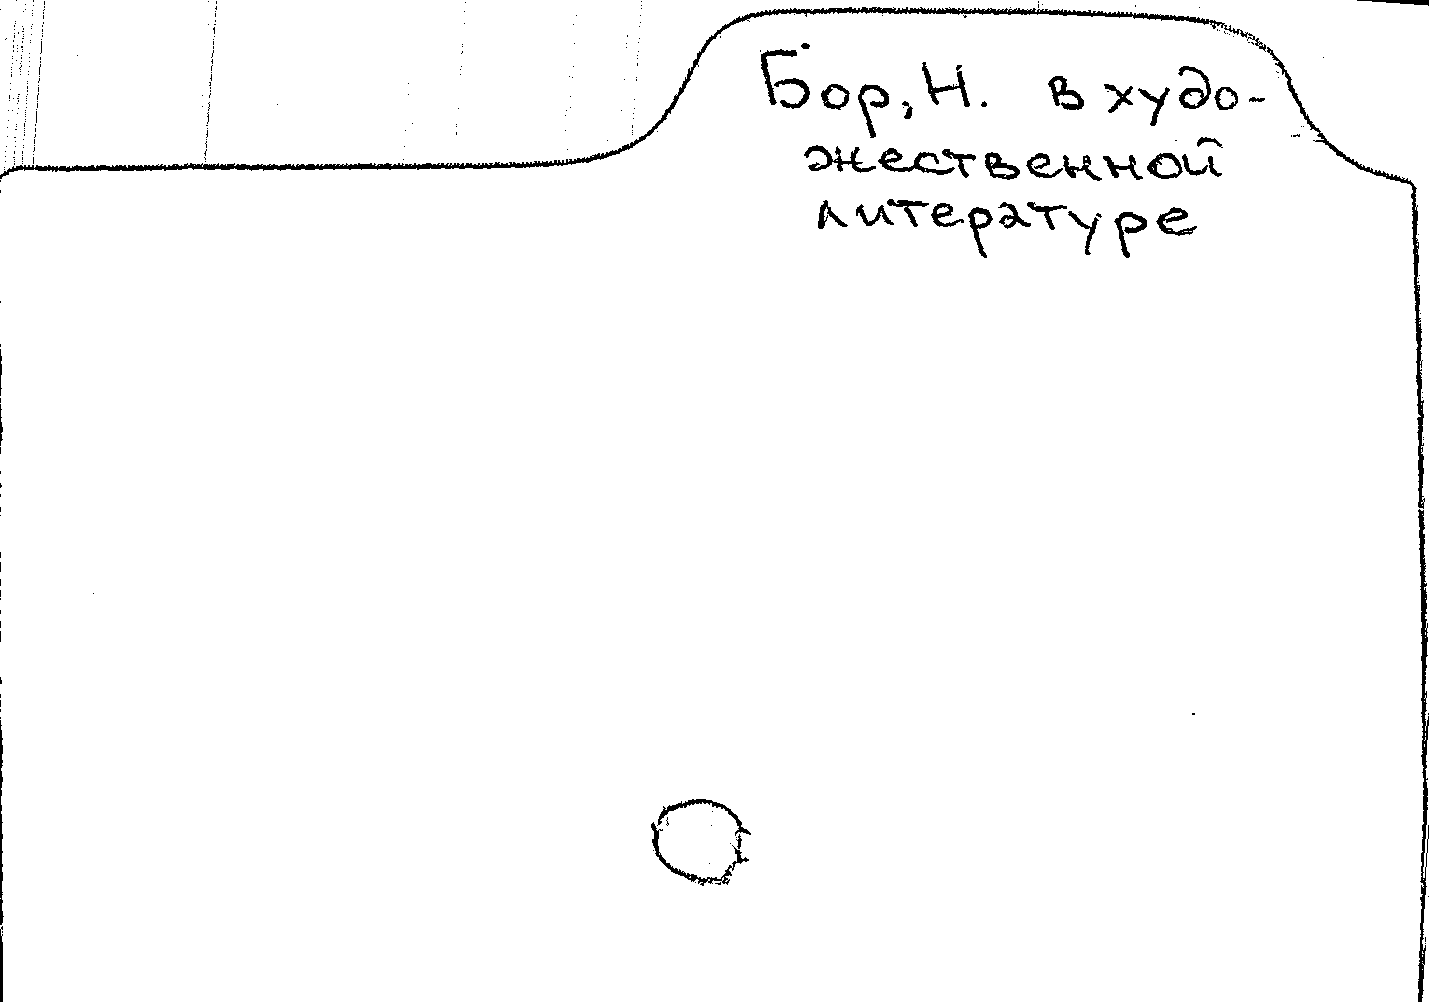 Бор, Н. в худо-
жественной
литературе